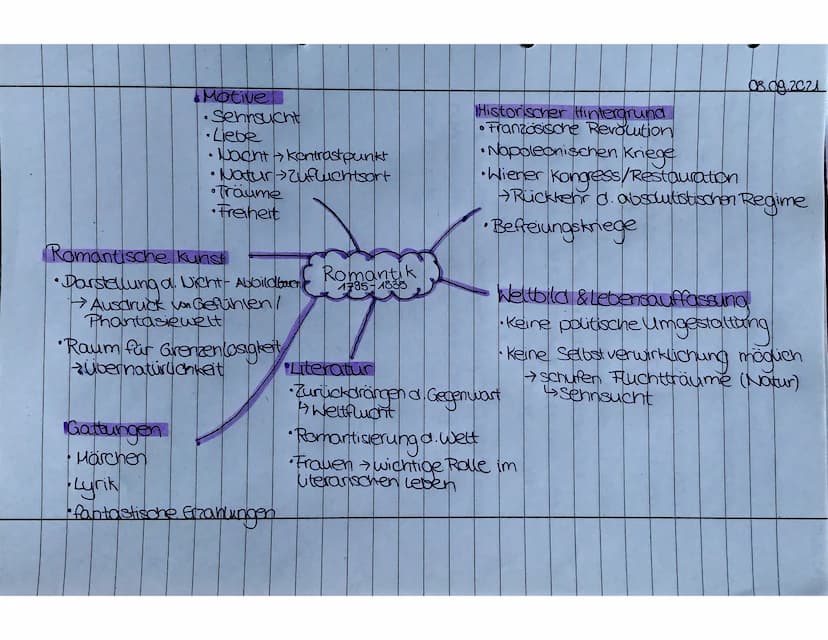 08.09.2021
Motive
• Sehnsucht
• Liebe
• Nacht → Kontrastpunkt
• Natur → Zufluchtsort
• Träume
• Freiheit
Historischer Hintergrund
• Französische Revolution
• Napoleonischen Kriege
• Wiener Kongress/Restauration
→ Rückkehr d. absolutistischen Regime
• Befreiungskriege
Romantische Kunst
• Darstellung d. Nicht-Abbildbaren
→ Ausdruck von Gefühlen/
Phantasiewelt
• Raum für Grenzenlosigkeit
→ Übernatürlichkeit
Romantik
Weltbild & Lebensauffassung
• Keine politische Umgestaltung
• Keine Selbstverwirklichung möglich
→ schufen Fluchtträume (Natur)
↳ Sehnsucht
Literatur
• Zurückdrängen d. Gegenwart
↳ Weltflucht
• Romantisierung d. Welt
• Frauen → wichtige Rolle im
literarischen Leben
Gattungen
• Märchen
• Lyrik
• fantastische Erzählungen